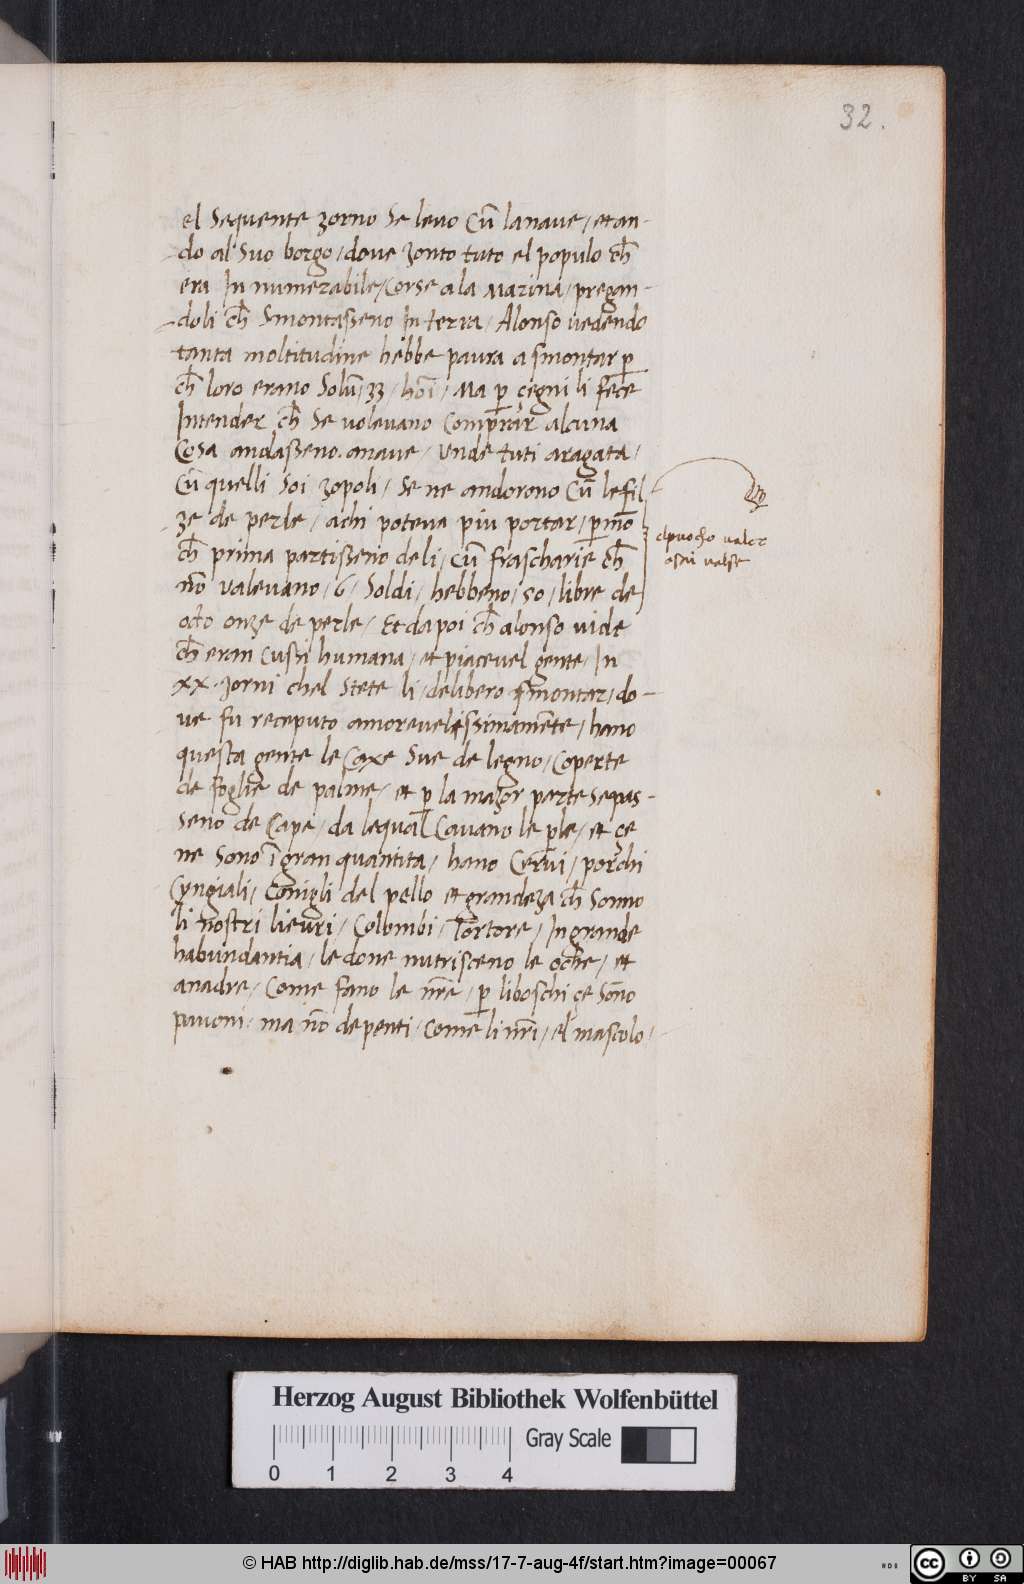 32.
el Sequente zorno Se levo Cū la nave / et an-
do al Suo borgo / dove zonto tuto el populo ch̄
era In numerabile / Corse a la Marina / pregan-
doli ch̄ Smontasseno In terra / Alonso vedendo
tanta moltitudine hebbe paura a smontar p̄
ch̄ loro erano Solū 33 / hoī / Ma p̄ çegni li fece
Intender ch̄ Se volevano Comprar alcuna
Cosa andasseno a nave / unde tuti a ragata /
Cū quelli Soi zopoli / Se ne andorono Cū le fil
ze de perle / a chi poteva piu portar / p̄ mō
ch̄ prima partisseno de li / Cū frascharie ch̄
nō valevano / 6 / Soldi / hebbeno / 50 / libre de
octo onze de perle / Et da poi ch̄ alonso vide
ch̄ eran Cussi humana / et piacevel gente / In
xx. zorni chel Stete li / delibero smontar / do-
ve fu receputo amorevelissimamēte / hano
questa gente le Caxe Sue de legno / Coperte
de foglie de palme / et p̄ la mazor parte Se pas-
seno de Cape / da le qual Cavano le p̄le / et çe
ne Sono ī gran quantita / hano Cervi / porchi
Cyngiali / Conigli del pello et grandeza ch̄ Sonno
li nostri lieuri / Colombi / Tortore / In grande
habundantia / le done nutrisceno le oche / et
anadre / Come fano le nr̄e / p̄ li boschi çe Sōno
pavoni / ma nō depenti / Come li nr̄i / el mascolo /
valer
valse
Herzog August Bibliothek Wolfenbüttel
Gray Scale
0 1 2 3 4
© HAB http://diglib.hab.de/mss/17-7-aug-4f/start.htm?image=00067
cc BY SA